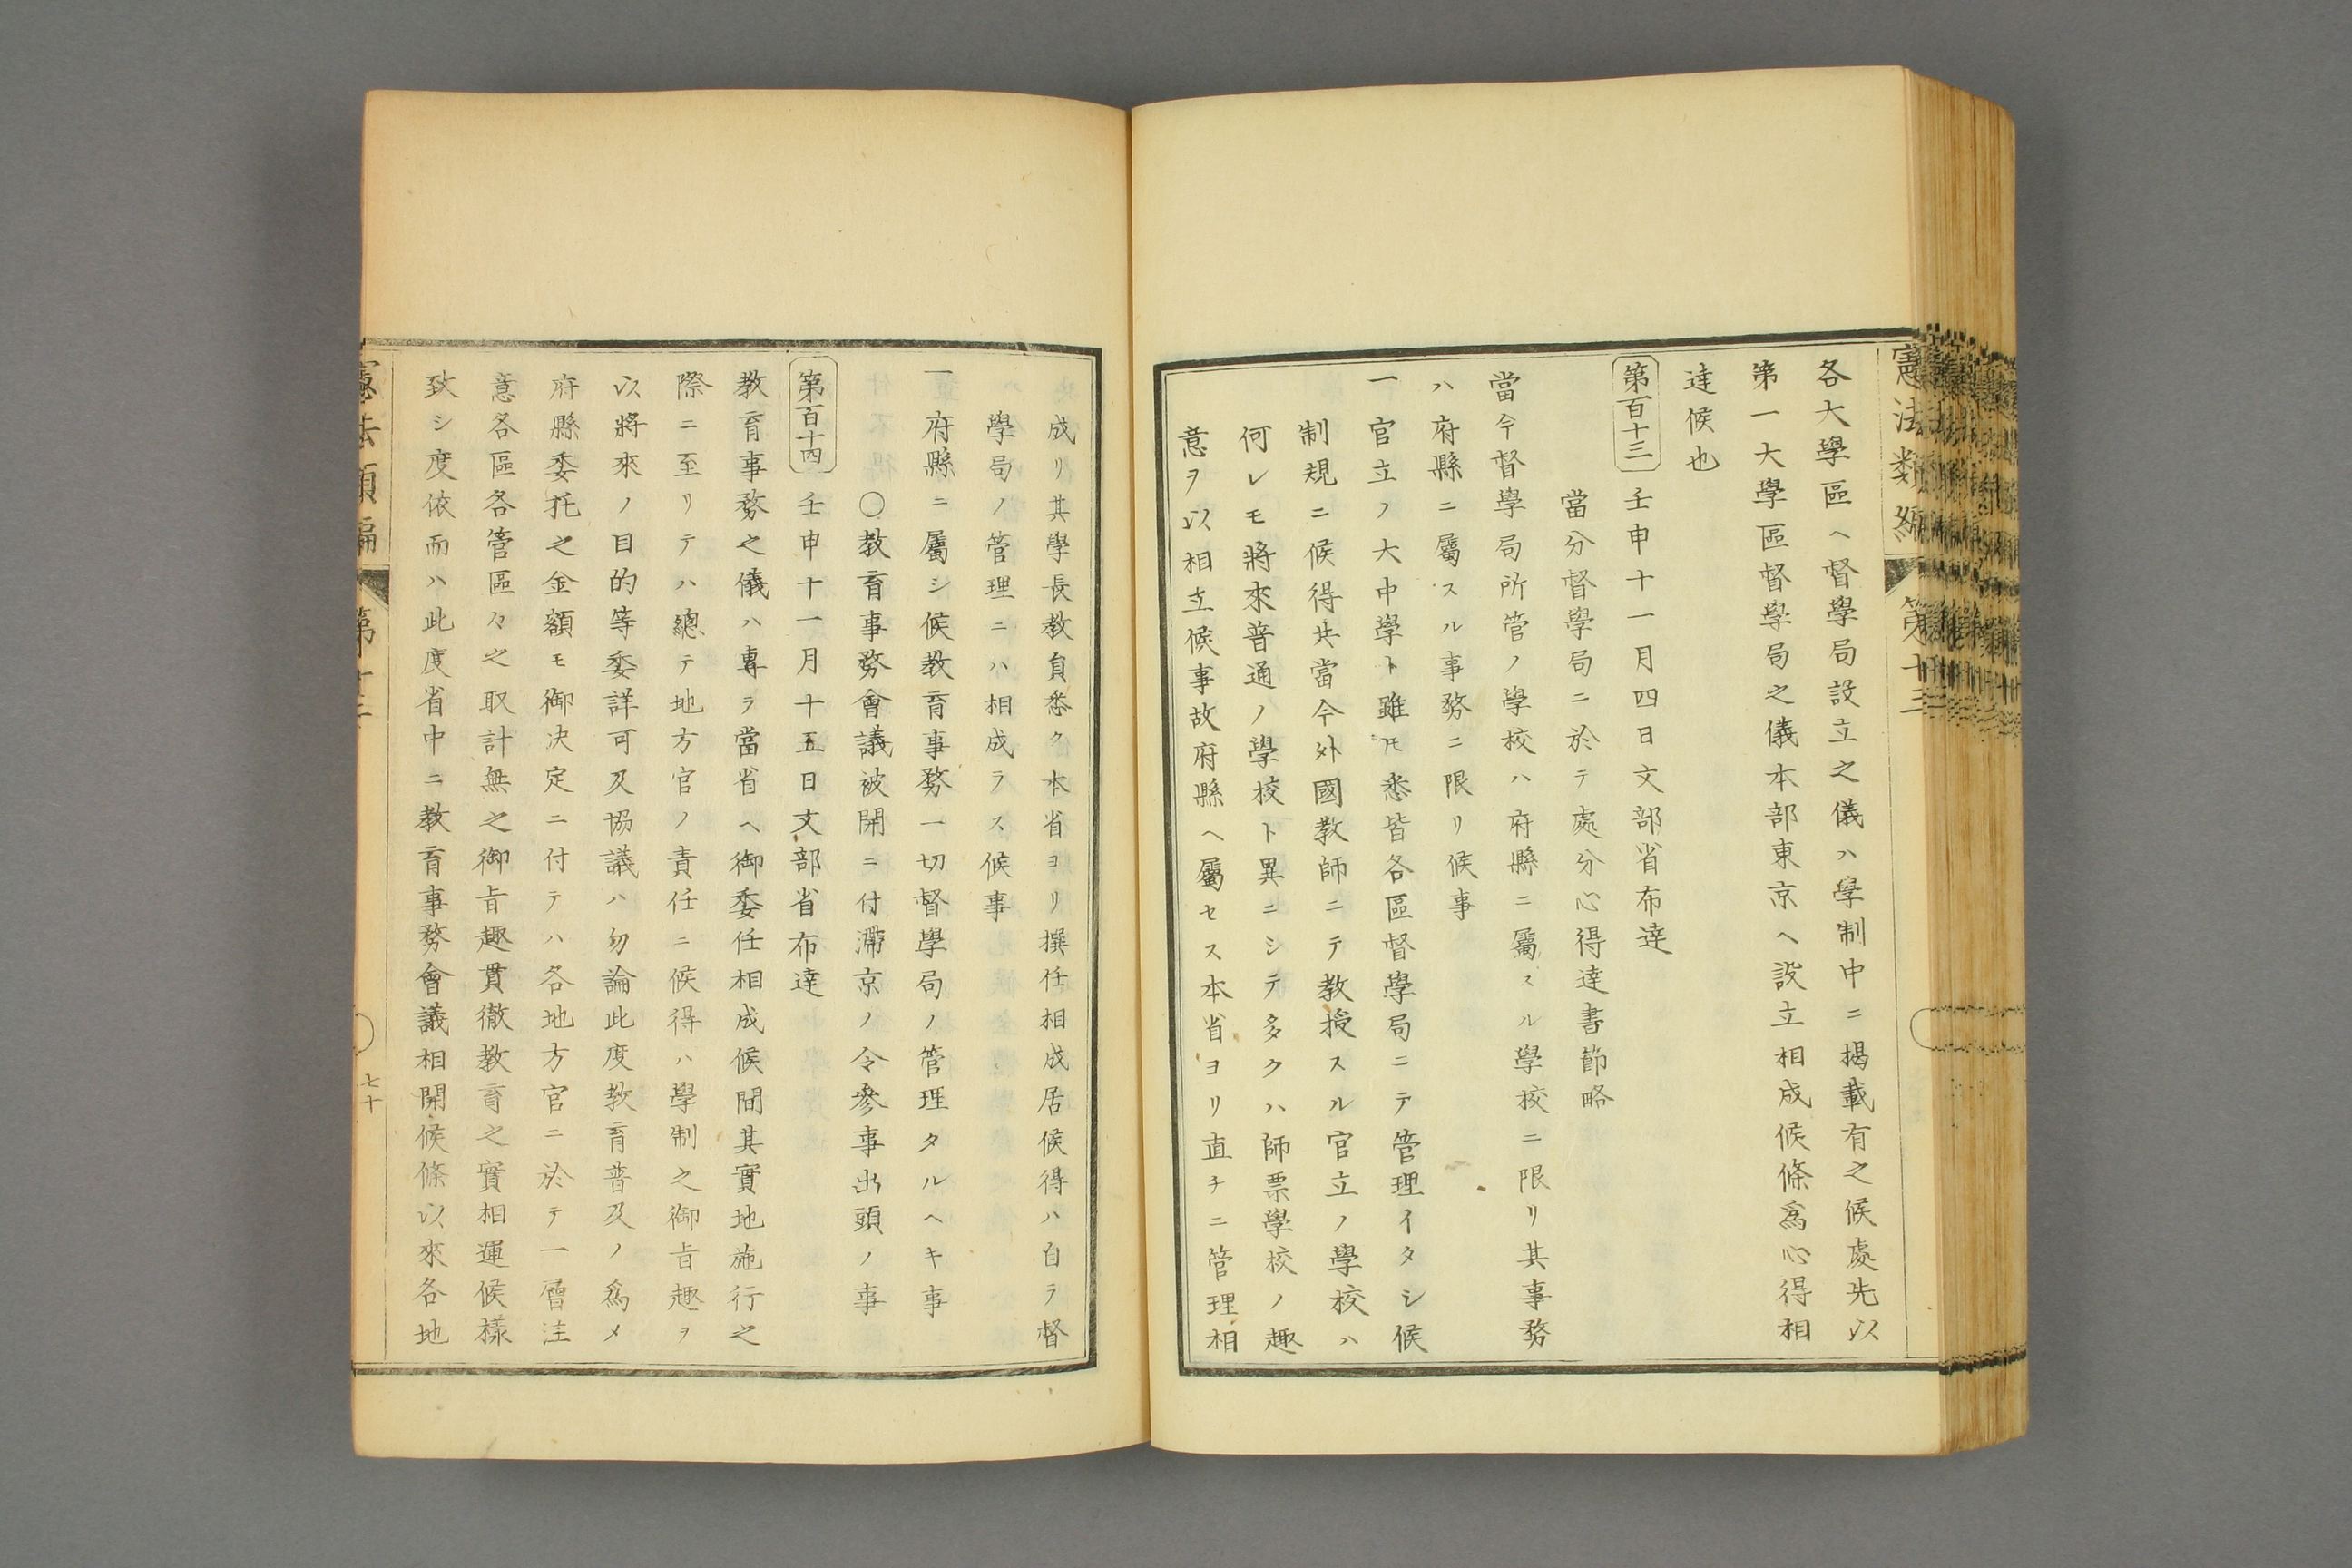 憲法類編
第十三
各大學區ヘ督學局設立之儀ハ學制中ニ掲載有之候處先以
第一大學區督學局之儀本部東京ヘ設立相成候條爲心得相
達候也
第百十三 壬申十一月四日文部省布達
當分督學局ニ於テ處分心得達書節略
當今督學局所管ノ學校ハ府縣ニ屬スル學校ニ限リ其事務
ハ府縣ニ屬スル事務ニ限リ候事
一 官立ノ大中學ト雖𪜈悉皆各區督學局ニテ管理イタシ候
制規ニ候得共當今外國教師ニテ教授スル官立ノ學校ハ
何レモ將來普通ノ學校ト異ニシテ多クハ師票學校ノ趣
意ヲ以相立候事故府縣ヘ屬セス本省ヨリ直チニ管理相
成リ其學長教員悉ク本省ヨリ撰任相成居候得ハ自ラ督
學局ノ管理ニハ相成ラス候事
一 府縣ニ屬シ候教育事務一切督學局ノ管理タルヘキ事
○教育事務會議被開ニ付滯京ノ令參事出頭ノ事
第百十四 壬申十一月十五日文部省布達
教育事務之儀ハ專ラ當省ヘ御委任相成候間其實地施行之
際ニ至リテハ總テ地方官ノ責任ニ候得ハ學制之御旨趣ヲ
以將來ノ目的等委詳可及協議ハ勿論此度教育普及ノ爲メ
府縣委托之金額モ御决定ニ付テハ各地方官ニ於テ一層注
意各區各管區々之取計無之御旨趣貫徹教育之實相運候樣
致シ度依而ハ此度省中ニ教育事務會議相開候條以來各地
憲法類編
第十三
七十